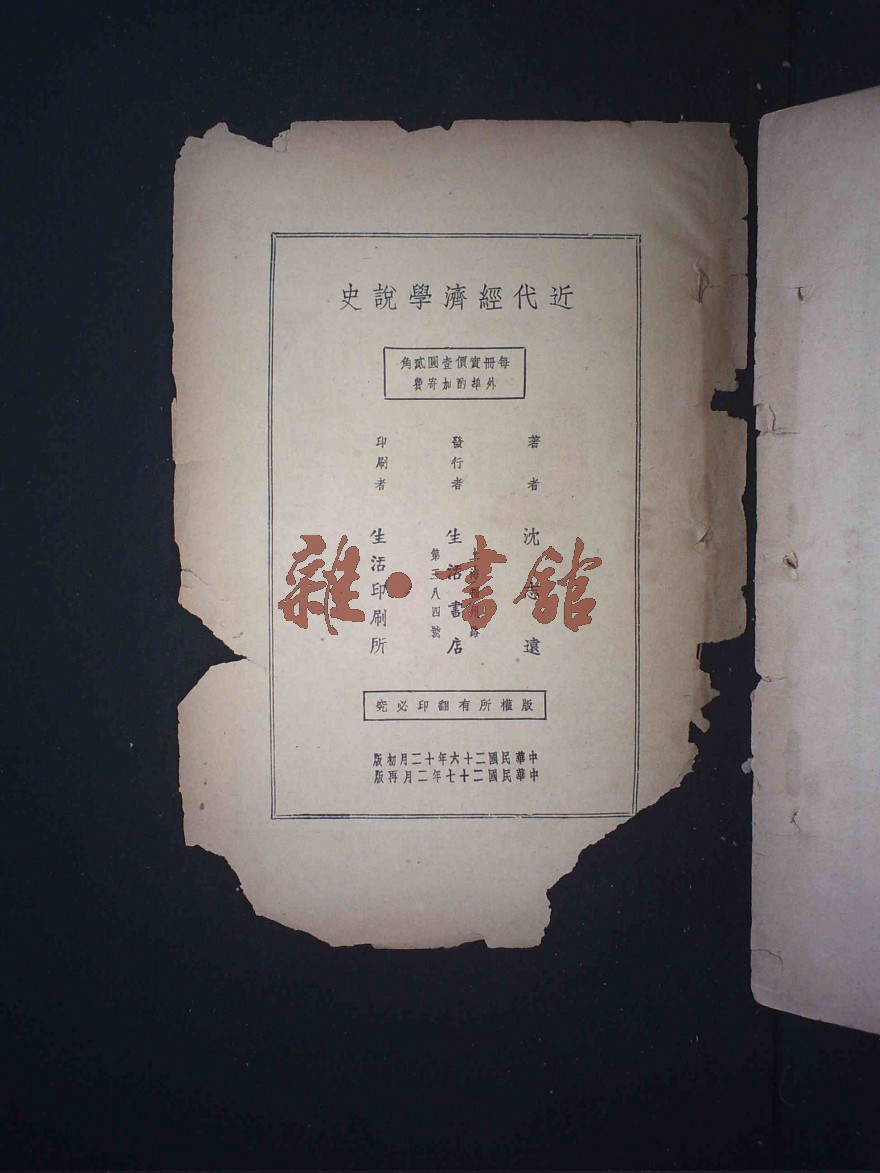 近代經濟學說史
每冊實價壹圓貳角
外埠酌加寄費
著者 沈志遠
發行者 生活書店
第三八四號
印刷者 生活印刷所
版權所有翻印必究
中華民國二十六年十二月初版
中華民國二十七年二月再版
雜·書館